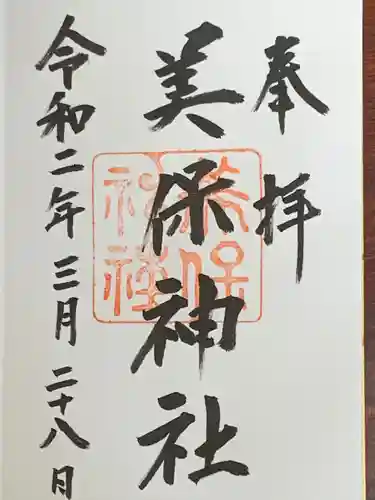 奉拝
美保神社
令和二年三月二十八日
美保
神社